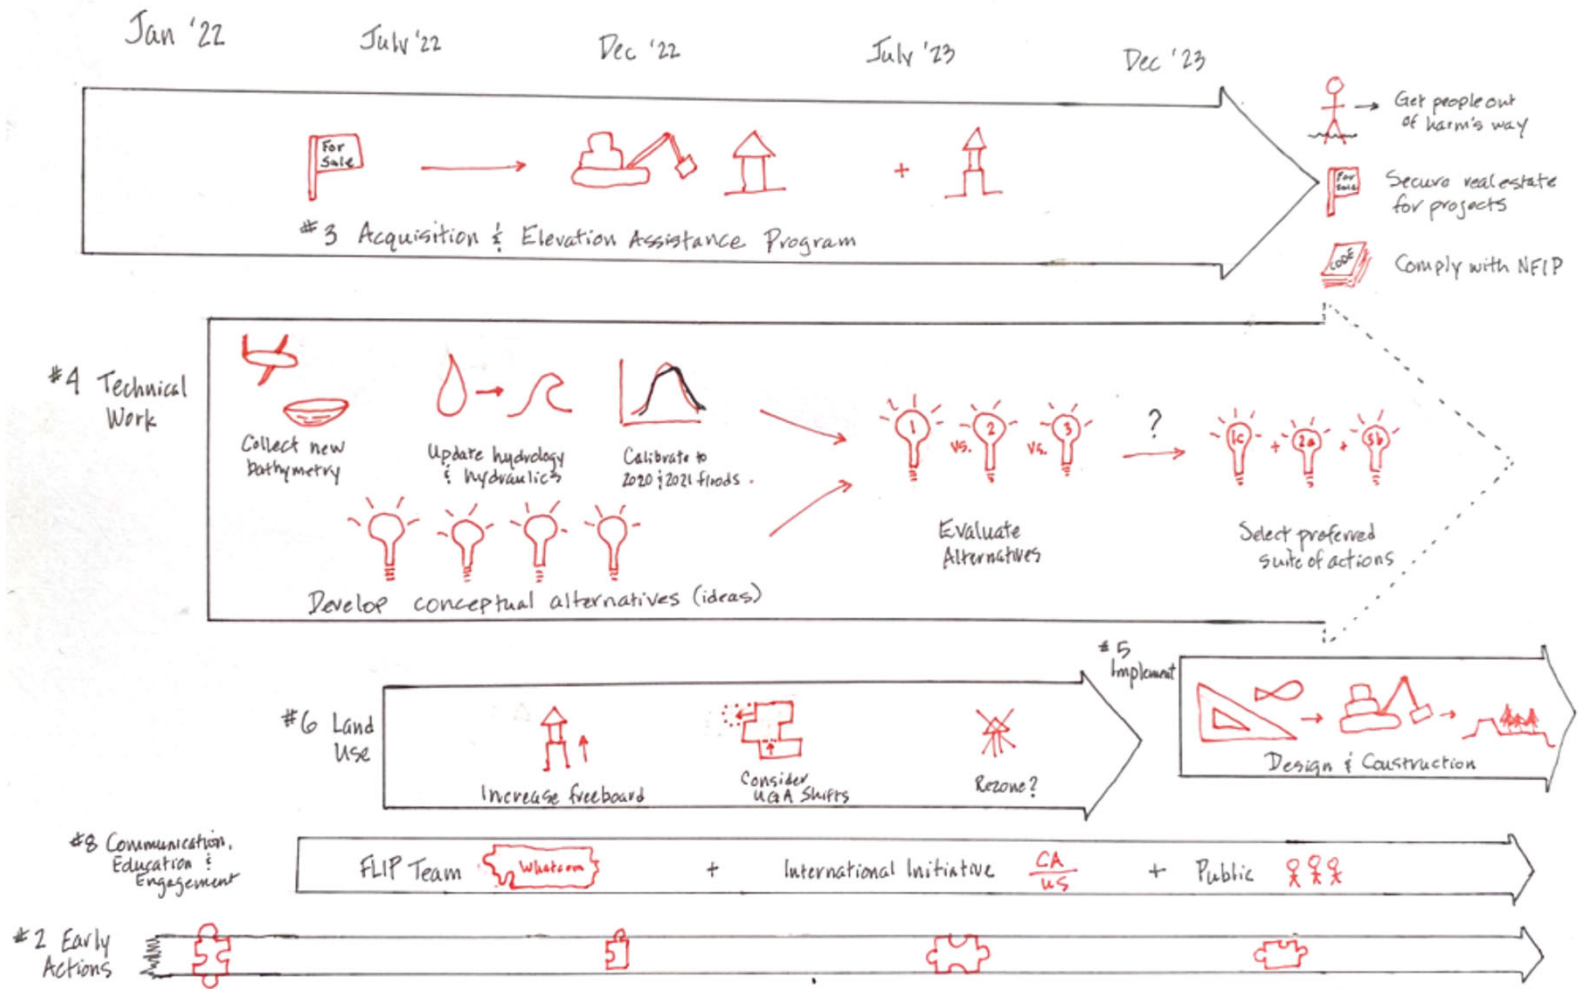 Jan '22
July '22
Dec '22
July '23
Dec '23
For
Sale
+
#3 Acquisition & Elevation Assistance Program
Get people out
of harm's way
For
Sale
Secure real estate
for projects
CODE
Comply with NFIP
#4 Technical
Work
Collect new
bathymetry
Update hydrology
& hydraulics
Calibrate to
2020 & 2021 floods.
Develop conceptual alternatives (ideas)
1 vs. 2 vs. 3
Evaluate
Alternatives
?
1c + 2a + 3b
Select preferred
suite of actions
#5
Implement
Design & Construction
#6 Land
Use
Increase freeboard
Consider
UGA Shifts
Rezone?
#8 Communication,
Education &
Engagement
FLIP Team Whatcom + International Initiative CA/US + Public
#2 Early
Actions